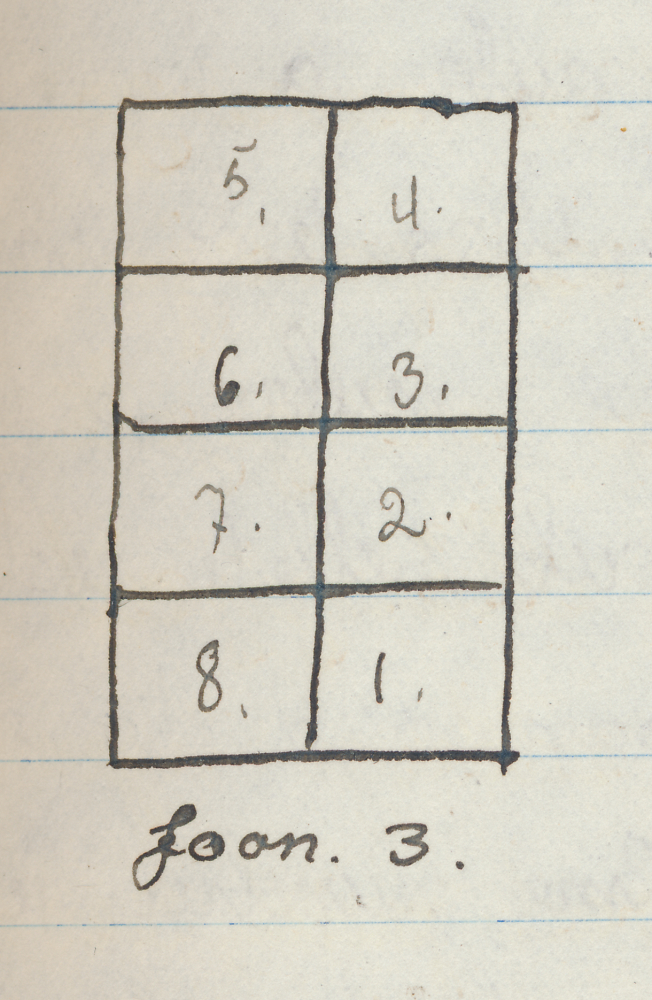 5. 4.
6. 3.
7. 2.
8. 1.
Joon. 3.